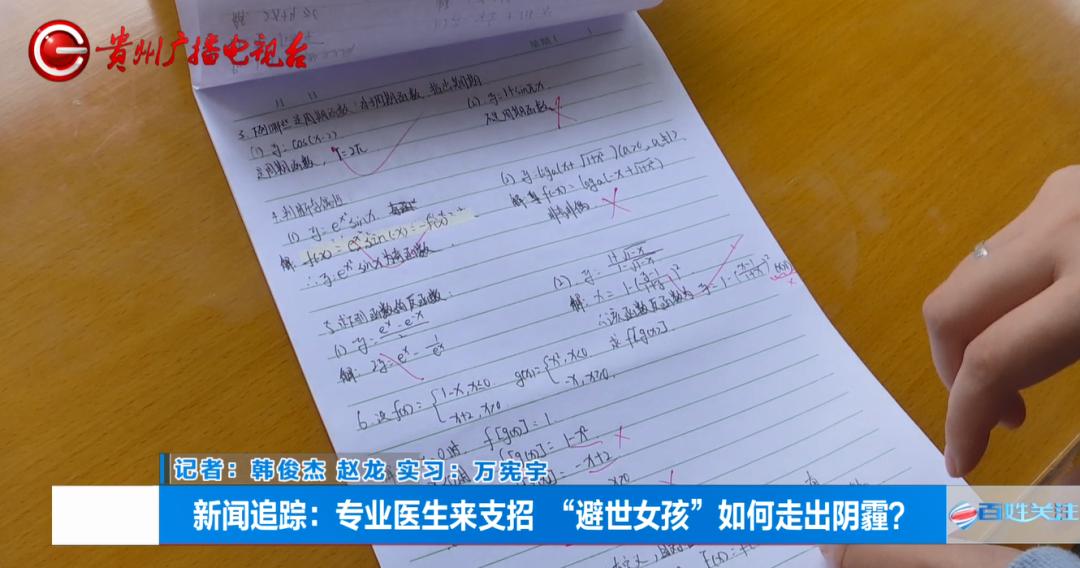 贵州广播电视台
3. 下列哪些是周期函数?对于周期函数,指出其周期
(1) y=cos(x-2)
是周期函数, T=2π
(2) y=1+sinπx
不是周期函数
4.判断奇偶性
(1) y=e^x² sinx
解: f(-x)=e^x² sin(-x)=-f(x)
∴y=e^x² sinx为奇函数
(2) y=loga(x+√1+x²)(a>0, a≠1)
f(-x)=loga(-x+√1+x²)
非奇非偶
5.求下列函数的反函数:
(1) y=e^x-e^-x/2
解: 2y=e^x-1/e^x
(2) y=1+√1-x/1-√1-x
解: x=1-(y-1/1+y)²
∴该函数反函数为 y=1-(x-1/1+x)²
6.设f(x)={1-x, x≤0 g(x)={x², x<0 求f[g(x)]
x+2, x>0 -x, x≥0
f[g(x)]=1
f[g(x)]=1-x²
=-x+2
x≥0
记者：韩俊杰 赵龙 实习：万宪宇
新闻追踪：专业医生来支招 “避世女孩”如何走出阴霾？
百姓关注